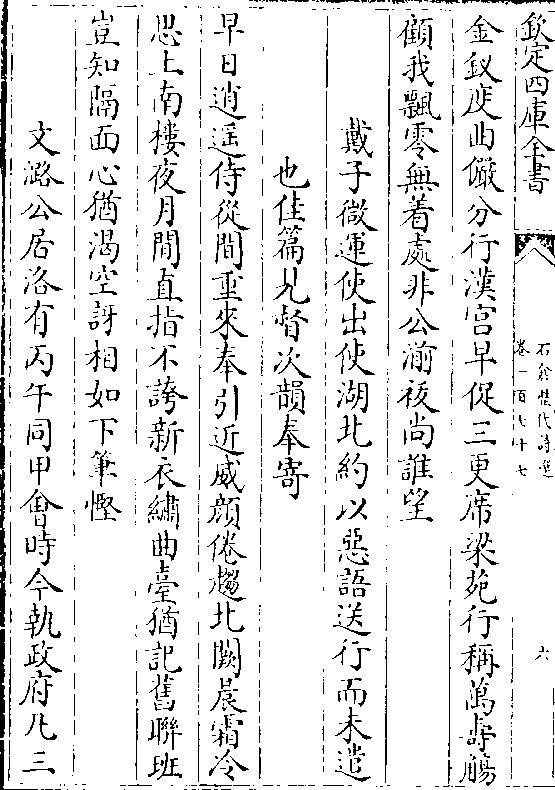 欽定四庫全書
石倉歷代詩選
卷一百七十七
六
金釵度曲儼分行漢宮早促三更席梁苑行稱萬壽觴
顧我飄零無着處非公湔祓尚誰望
戴子微運使出使湖北約以惡語送行而未造
也佳篇見督次韻奉寄
早日逍遥侍從間重來奉引近威顔倦趨北闕晨霜冷
思上南樓夜月閒直指不誇新衣繡曲臺猶記舊聯班
豈知隔面心猶渴空訝相如下筆慳
文潞公居洛有丙午同甲會時今執政府凡三